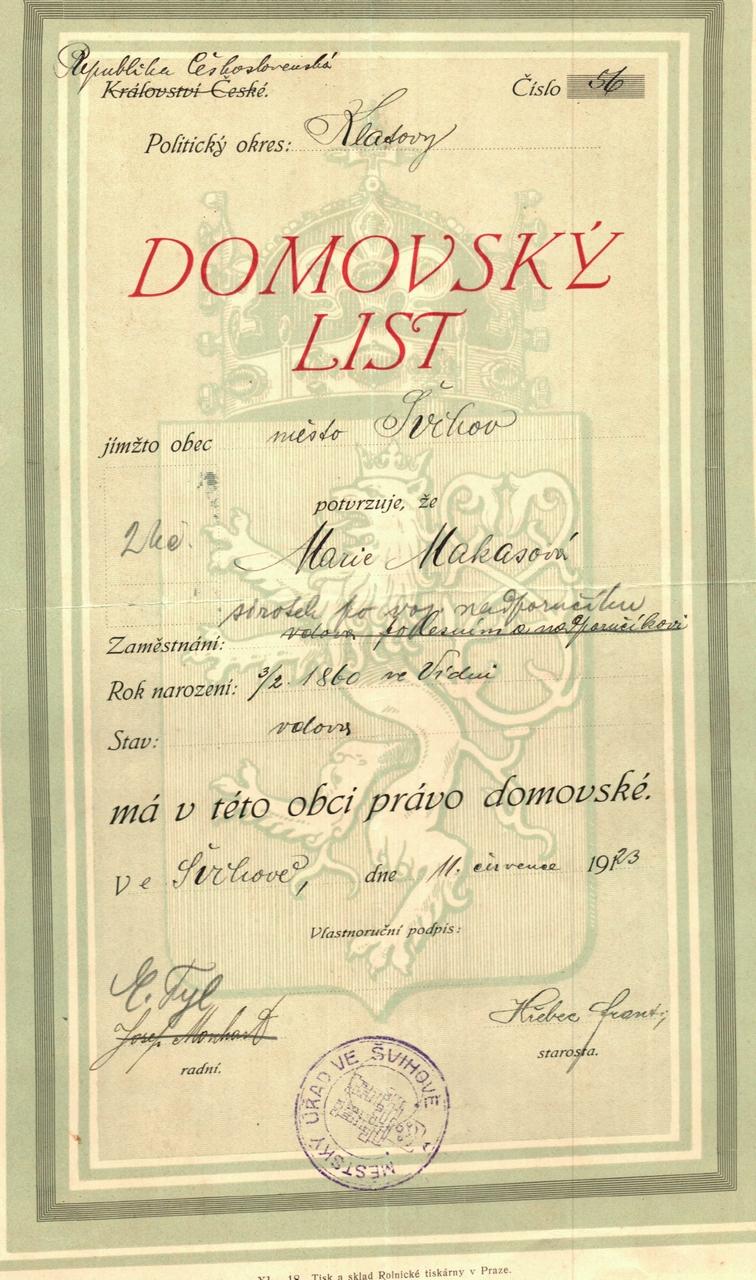 Republika Československá
Království České.
Číslo 56
Politický okres: Klatovy
DOMOVSKÝ
LIST
jímžto obec město Švihov
potvrzuje, že
2 Kč.
Marie Makasová
sirotek po voj. nadporučíku
Zaměstnání: vdova po nadporučíkovi
Rok narození: 3/2. 1860 ve Vídni
Stav: vdova
má v této obci právo domovské.
Ve Švihově, dne 11. července 1923
Vlastnoruční podpis:
Josef
radní.
Hřebec
starosta.
MĚSTSKÝ ÚŘAD VE ŠVIHOVĚ
18. Tisk a sklad Rolnické tiskárny v Praze.